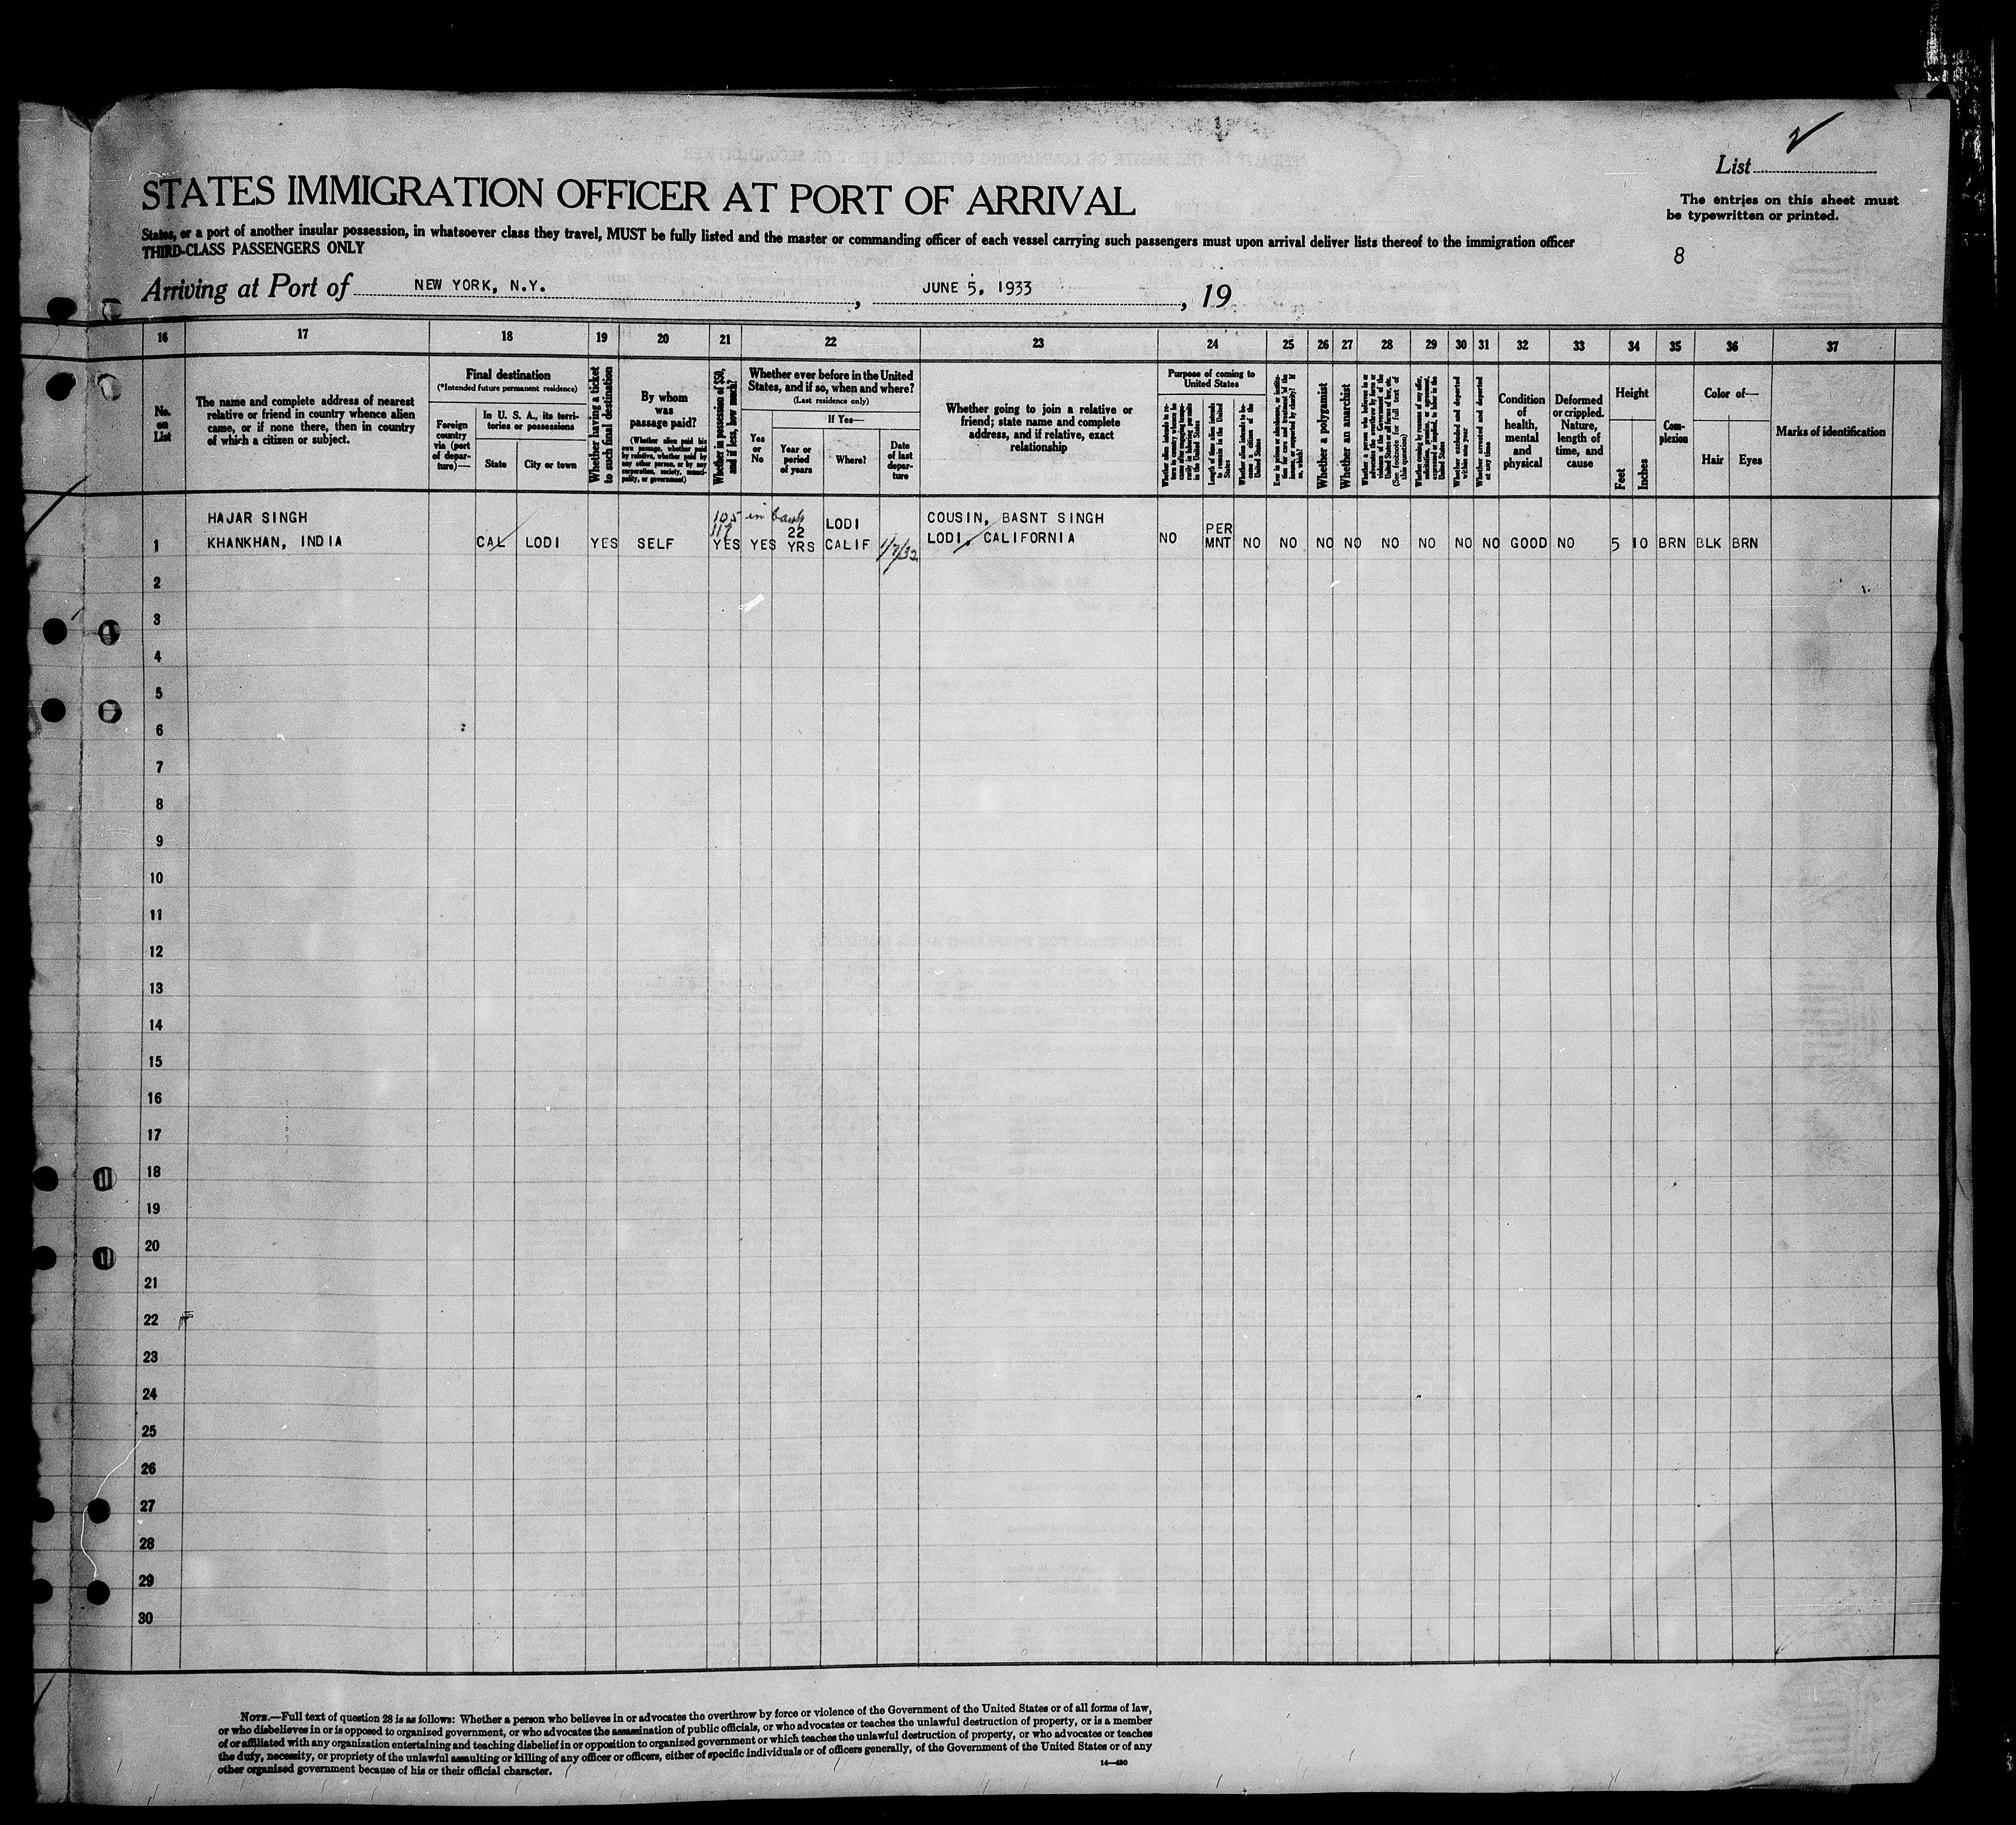 List 2
The entries on this sheet must
be typewritten or printed.
8
STATES IMMIGRATION OFFICER AT PORT OF ARRIVAL
States, or a port of another insular possession, in whatsoever class they travel, MUST be fully listed and the master or commanding officer of each vessel carrying such passengers must upon arrival deliver lists thereof to the immigration officer
THIRD-CLASS PASSENGERS ONLY
Arriving at Port of NEW YORK, N.Y. , JUNE 5, 1933 , 19
16 17 18 19 20 21 22 23 24 25 26 27 28 29 30 31 32 33 34 35 36 37
No.
on
List
The name and complete address of nearest
relative or friend in country whence alien
came, or if none there, then in country
of which a citizen or subject.
Final destination
(*Intended future permanent residence)
Foreign
country
via (port
of depar-
ture)—
In U. S. A., its terri-
tories or possessions
State
City or town
Whether having a ticket
to such final destination
By whom
was
passage paid?
(Whether alien paid his
own passage, whether paid
by relative, whether paid by
any other person, or by any
corporation, society, munici-
pality, or government)
Whether in possession of $50,
and if less, how much?
Whether ever before in the United
States, and if so, when and where?
(Last residence only)
Yes
or
No
If Yes—
Year or
period
of years
Where?
Date
of last
depar-
ture
Whether going to join a relative or
friend; state name and complete
address, and if relative, exact
relationship
Purpose of coming to
United States
Whether alien intends to re-
turn to country whence he
came after engaging tempo-
rarily in laboring pursuits
in the United States
Length of time alien intends
to remain in the United
States
Whether alien intends to be-
come a citizen of the
United States
Ever in prison or almshouse, or institu-
tion for care and treatment of the
insane, or supported by charity? If
so, which?
Whether a polygamist
Whether an anarchist
Whether a person who believes in or
advocates the overthrow by force or
violence of the Government of the
United States or all forms of law, etc.
(See footnote for full text of
this question)
Whether coming by reason of any offer,
solicitation, promise, or agreement,
expressed or implied, to labor in the
United States
Whether excluded and deported
within one year
Whether arrested and deported
at any time
Condition
of
health,
mental
and
physical
Deformed
or crippled.
Nature,
length of
time, and
cause
Height
Feet
Inches
Com-
plexion
Color of—
Hair
Eyes
Marks of identification
105 in bank
HAJAR SINGH 117 22 LODI COUSIN, BASNT SINGH PER
1 KHANKHAN, INDIA CAL LODI YES SELF YES YES YRS CALIF 1/7/32 LODI, CALIFORNIA NO MNT NO NO NO NO NO NO NO NO GOOD NO 5 10 BRN BLK BRN
2
3
4
5
6
7
8
9
10
11
12
13
14
15
16
17
18
19
20
21
22
23
24
25
26
27
28
29
30
NOTE.—Full text of question 28 is as follows: Whether a person who believes in or advocates the overthrow by force or violence of the Government of the United States or of all forms of law,
or who disbelieves in or is opposed to organized government, or who advocates the assassination of public officials, or who advocates or teaches the unlawful destruction of property, or is a member
of or affiliated with any organization entertaining and teaching disbelief in or opposition to organized government or which teaches the unlawful destruction of property, or who advocates or teaches
the duty, necessity, or propriety of the unlawful assaulting or killing of any officer or officers, either of specific individuals or of officers generally, of the Government of the United States or of any
other organized government because of his or their official character.
14—480